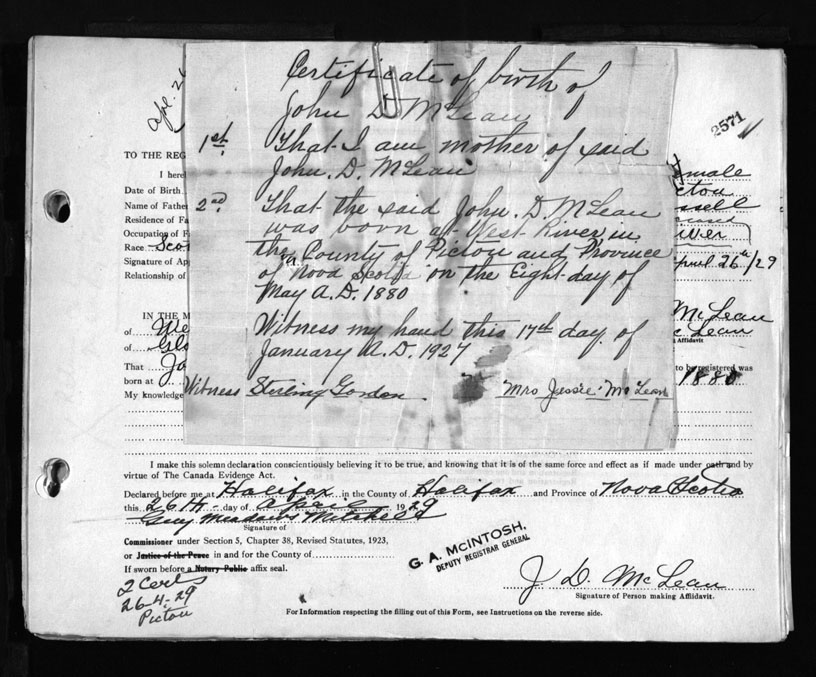 2571
Ape. 26
Certificate of birth of
John D McLean
1st. That I am mother of said
John. D. McLean
2nd. That the said John. D. McLean
was born at West River in
the County of Pictou and Province
of Nova Scotia on the Eight day of
May A.D. 1880
Witness my hand this 17th day of
January A.D. 1927
Witness Sterling Gordon Mrs Jessie McLean
TO THE REG
I here
Date of Birth
Name of Fathe
Residence of Fa
Occupation of F
Race Sco
Signature of Ap
Relationship of
male
ctou
ssell
iver
pril 26th/29
IN THE M McLean
of We c Lean
of Affidavit
That Jo to be registered was
born at 1880
My knowledge
I make this solemn declaration conscientiously believing it to be true, and knowing that it is of the same force and effect as if made under oath and by
virtue of The Canada Evidence Act.
Declared before me at Halifax in the County of Halifax and Province of Nova Scotia
this 26th day of April 1929
Guy Meadows Mitchell
Signature of
Commissioner under Section 5, Chapter 38, Revised Statutes, 1923,
or Justice of the Peace in and for the County of
If sworn before a Notary Public affix seal.
G. A. McINTOSH,
DEPUTY REGISTRAR GENERAL
2 Certs
26-4-29
Pictou
J. D. McLean
Signature of Person making Affidavit.
For Information respecting the filling out of this Form, see Instructions on the reverse side.